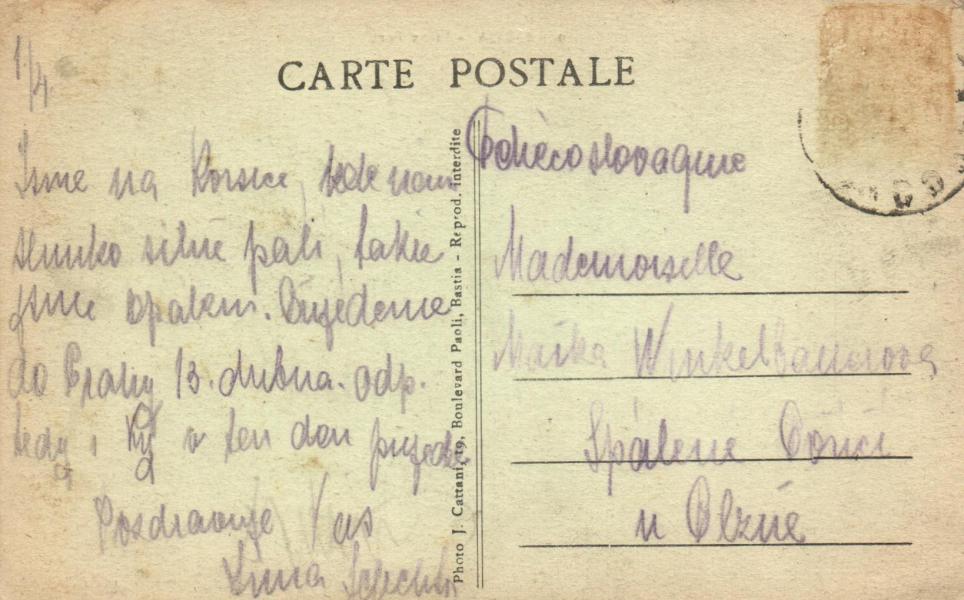 CARTE POSTALE
1/4.
Jsme na Korsice, kde nám
slunko silně pálí, takže
jsme opáleni. Přijedeme
do Prahy 13. dubna. odp.
tedy i Ky v ten den přijede
Pozdravuje Vás
Photo J. Cattani, 19, Boulevard Paoli, Bastia - Reprod. interdite
Tchècoslovaquie
Mademoiselle
Mařka Winkelbauerova
Spálené Poříčí
u Plzně